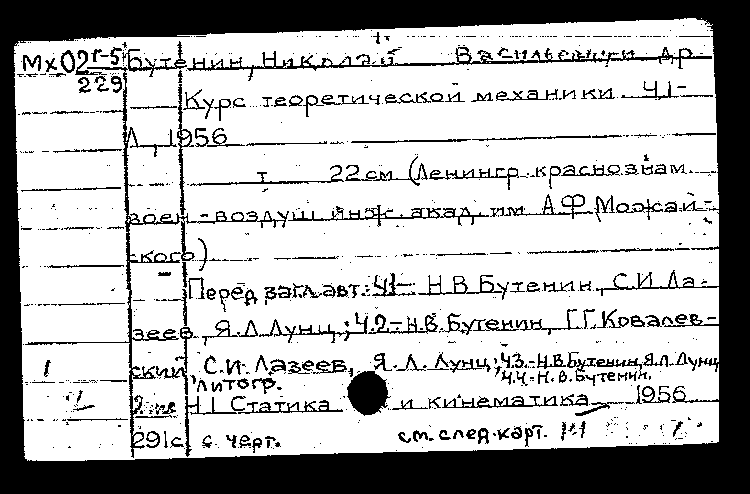 Мх02г-5 Бутенин, Николай Васильевич и др
229
Курс теоретической механики. Ч.1-
Л, 1956
т 22 см (Ленингр. краснознам.
воен-воздуш инж. акад. им А.Ф Можай-
ского)
Перед загл. авт: Ч.1- Н.В Бутенин, С.И Ла-
зеев, Я.Л Лунц; Ч.2-Н.В. Бутенин, Г.Г. Ковалев-
1 ский, С.И. Лазеев, Я.Л. Лунц; Ч.3.-Н.В.Бутенин, Я.Л. Лунц
Литогр. Ч.4.-Н.В.Бутенин.
Ч I Статика и кинематика 1956
291с с черт. см. след. карт.